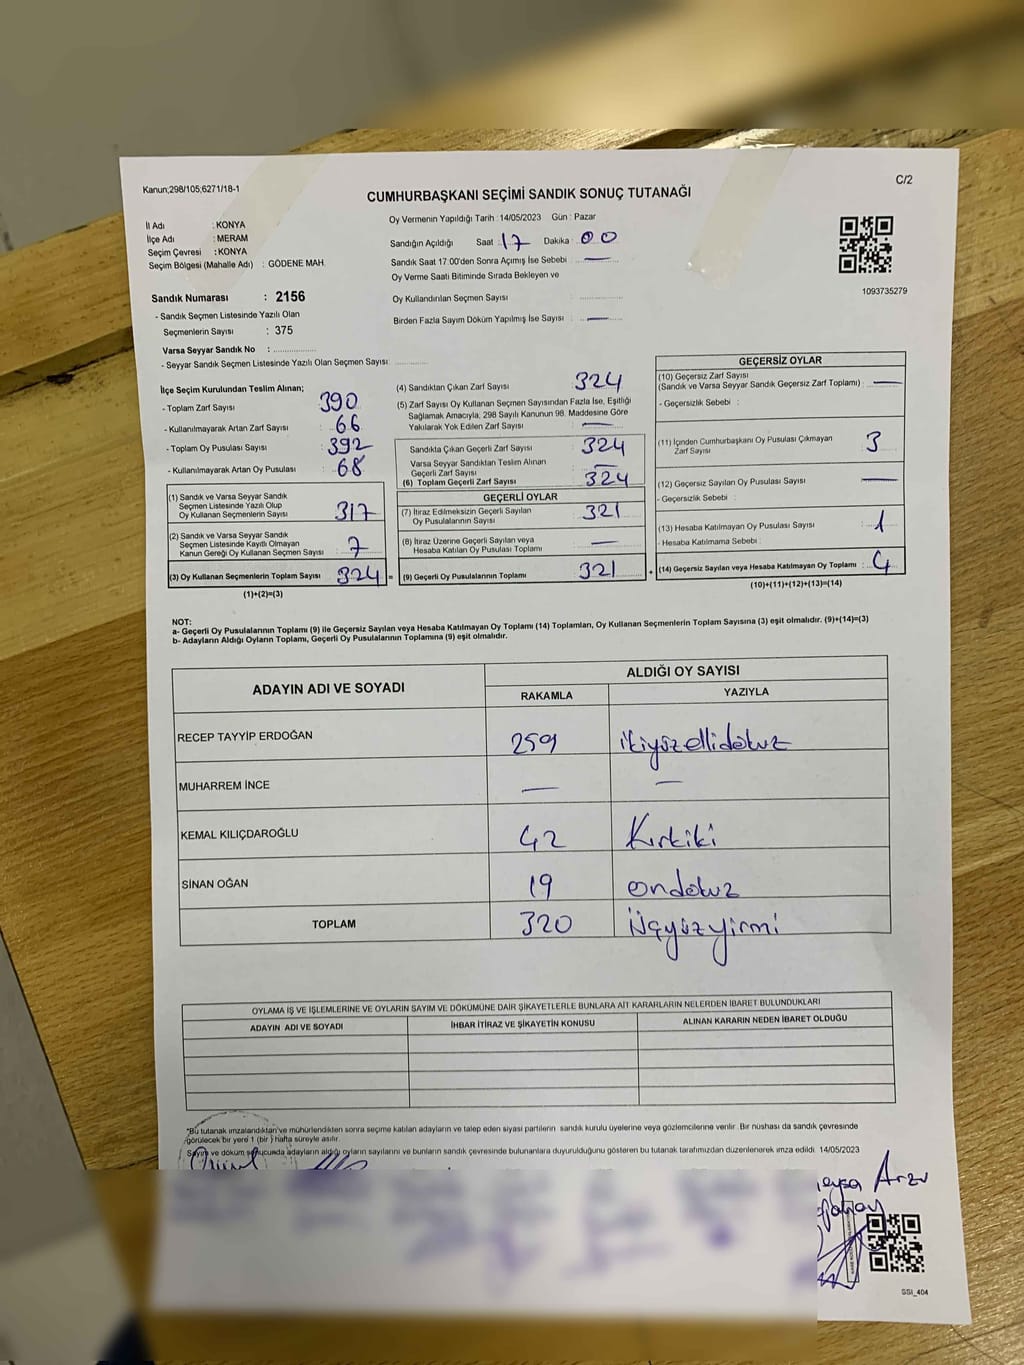 Kanun;298/105;6271/18-1
C/2
CUMHURBAŞKANI SEÇİMİ SANDIK SONUÇ TUTANAĞI
İl Adı : KONYA
İlçe Adı : MERAM
Seçim Çevresi : KONYA
Seçim Bölgesi (Mahalle Adı) : GÖDENE MAH.
Oy Vermenin Yapıldığı Tarih : 14/05/2023 Gün : Pazar
Sandığın Açıldığı Saat : 17 Dakika : 00
Sandık Saat 17:00'den Sonra Açımış İse Sebebi : —
Oy Verme Saati Bitiminde Sırada Bekleyen ve
Oy Kullandırılan Seçmen Sayısı :
Birden Fazla Sayım Döküm Yapılmış İse Sayısı : —
1093735279
Sandık Numarası : 2156
- Sandık Seçmen Listesinde Yazılı Olan
Seçmenlerin Sayısı : 375
Varsa Seyyar Sandık No :
- Seyyar Sandık Seçmen Listesinde Yazılı Olan Seçmen Sayısı:
İlçe Seçim Kurulundan Teslim Alınan;
- Toplam Zarf Sayısı : 390
- Kullanılmayarak Artan Zarf Sayısı : 66
- Toplam Oy Pusulası Sayısı : 392
- Kullanılmayarak Artan Oy Pusulası : 68
(1) Sandık ve Varsa Seyyar Sandık
Seçmen Listesinde Yazılı Olup
Oy Kullanan Seçmenlerin Sayısı : 317
(2) Sandık ve Varsa Seyyar Sandık
Seçmen Listesinde Kayıtlı Olmayan
Kanun Gereği Oy Kullanan Seçmen Sayısı : 7
(3) Oy Kullanan Seçmenlerin Toplam Sayısı : 324 =
(1)+(2)=(3)
(4) Sandıktan Çıkan Zarf Sayısı : 324
(5) Zarf Sayısı Oy Kullanan Seçmen Sayısından Fazla İse, Eşitliği
Sağlamak Amacıyla, 298 Sayılı Kanunun 98. Maddesine Göre
Yakılarak Yok Edilen Zarf Sayısı : —
Sandıkta Çıkan Geçerli Zarf Sayısı : 324
Varsa Seyyar Sandıktan Teslim Alınan
Geçerli Zarf Sayısı : —
(6) Toplam Geçerli Zarf Sayısı : 324
GEÇERLİ OYLAR
(7) İtiraz Edilmeksizin Geçerli Sayılan
Oy Pusulalarının Sayısı : 321
(8) İtiraz Üzerine Geçerli Sayılan veya
Hesaba Katılan Oy Pusulası Toplamı : —
(9) Geçerli Oy Pusulalarının Toplamı : 321 +
GEÇERSİZ OYLAR
(10) Geçersiz Zarf Sayısı
(Sandık ve Varsa Seyyar Sandık Geçersiz Zarf Toplamı) : —
- Geçersizlik Sebebi :
(11) İçinden Cumhurbaşkanı Oy Pusulası Çıkmayan
Zarf Sayısı : 3
(12) Geçersiz Sayılan Oy Pusulası Sayısı : —
- Geçersizlik Sebebi :
(13) Hesaba Katılmayan Oy Pusulası Sayısı : 1
- Hesaba Katılmama Sebebi :
(14) Geçersiz Sayılan veya Hesaba Katılmayan Oy Toplamı : 4
(10)+(11)+(12)+(13)=(14)
NOT:
a- Geçerli Oy Pusulalarının Toplamı (9) ile Geçersiz Sayılan veya Hesaba Katılmayan Oy Toplamı (14) Toplamları, Oy Kullanan Seçmenlerin Toplam Sayısına (3) eşit olmalıdır. (9)+(14)=(3)
b- Adayların Aldığı Oyların Toplamı, Geçerli Oy Pusulalarının Toplamına (9) eşit olmalıdır.
ADAYIN ADI VE SOYADI
ALDIĞI OY SAYISI
RAKAMLA YAZIYLA
RECEP TAYYİP ERDOĞAN 259 ikiyüzellidokuz
MUHARREM İNCE — —
KEMAL KILIÇDAROĞLU 42 Kırkiki
SİNAN OĞAN 19 ondokuz
TOPLAM 320 üçyüzyirmi
OYLAMA İŞ VE İŞLEMLERİNE VE OYLARIN SAYIM VE DÖKÜMÜNE DAİR ŞİKAYETLERLE BUNLARA AİT KARARLARIN NELERDEN İBARET BULUNDUKLARI
ADAYIN ADI VE SOYADI İHBAR İTİRAZ VE ŞİKAYETİN KONUSU ALINAN KARARIN NEDEN İBARET OLDUĞU
*Bu tutanak imzalandıktan ve mühürlendikten sonra seçime katılan adayların ve talep eden siyasi partilerin sandık kurulu üyelerine veya gözlemcilerine verilir. Bir nüshası da sandık çevresinde
görülecek bir yere 1 (bir ) hafta süreyle asılır.
Sayım ve döküm sonucunda adayların aldığı oyların sayılarını ve bunların sandık çevresinde bulunanlara duyurulduğunu gösteren bu tutanak tarafımızdan düzenlenerek imza edildi. 14/05/2023
Arzu
SSI_404